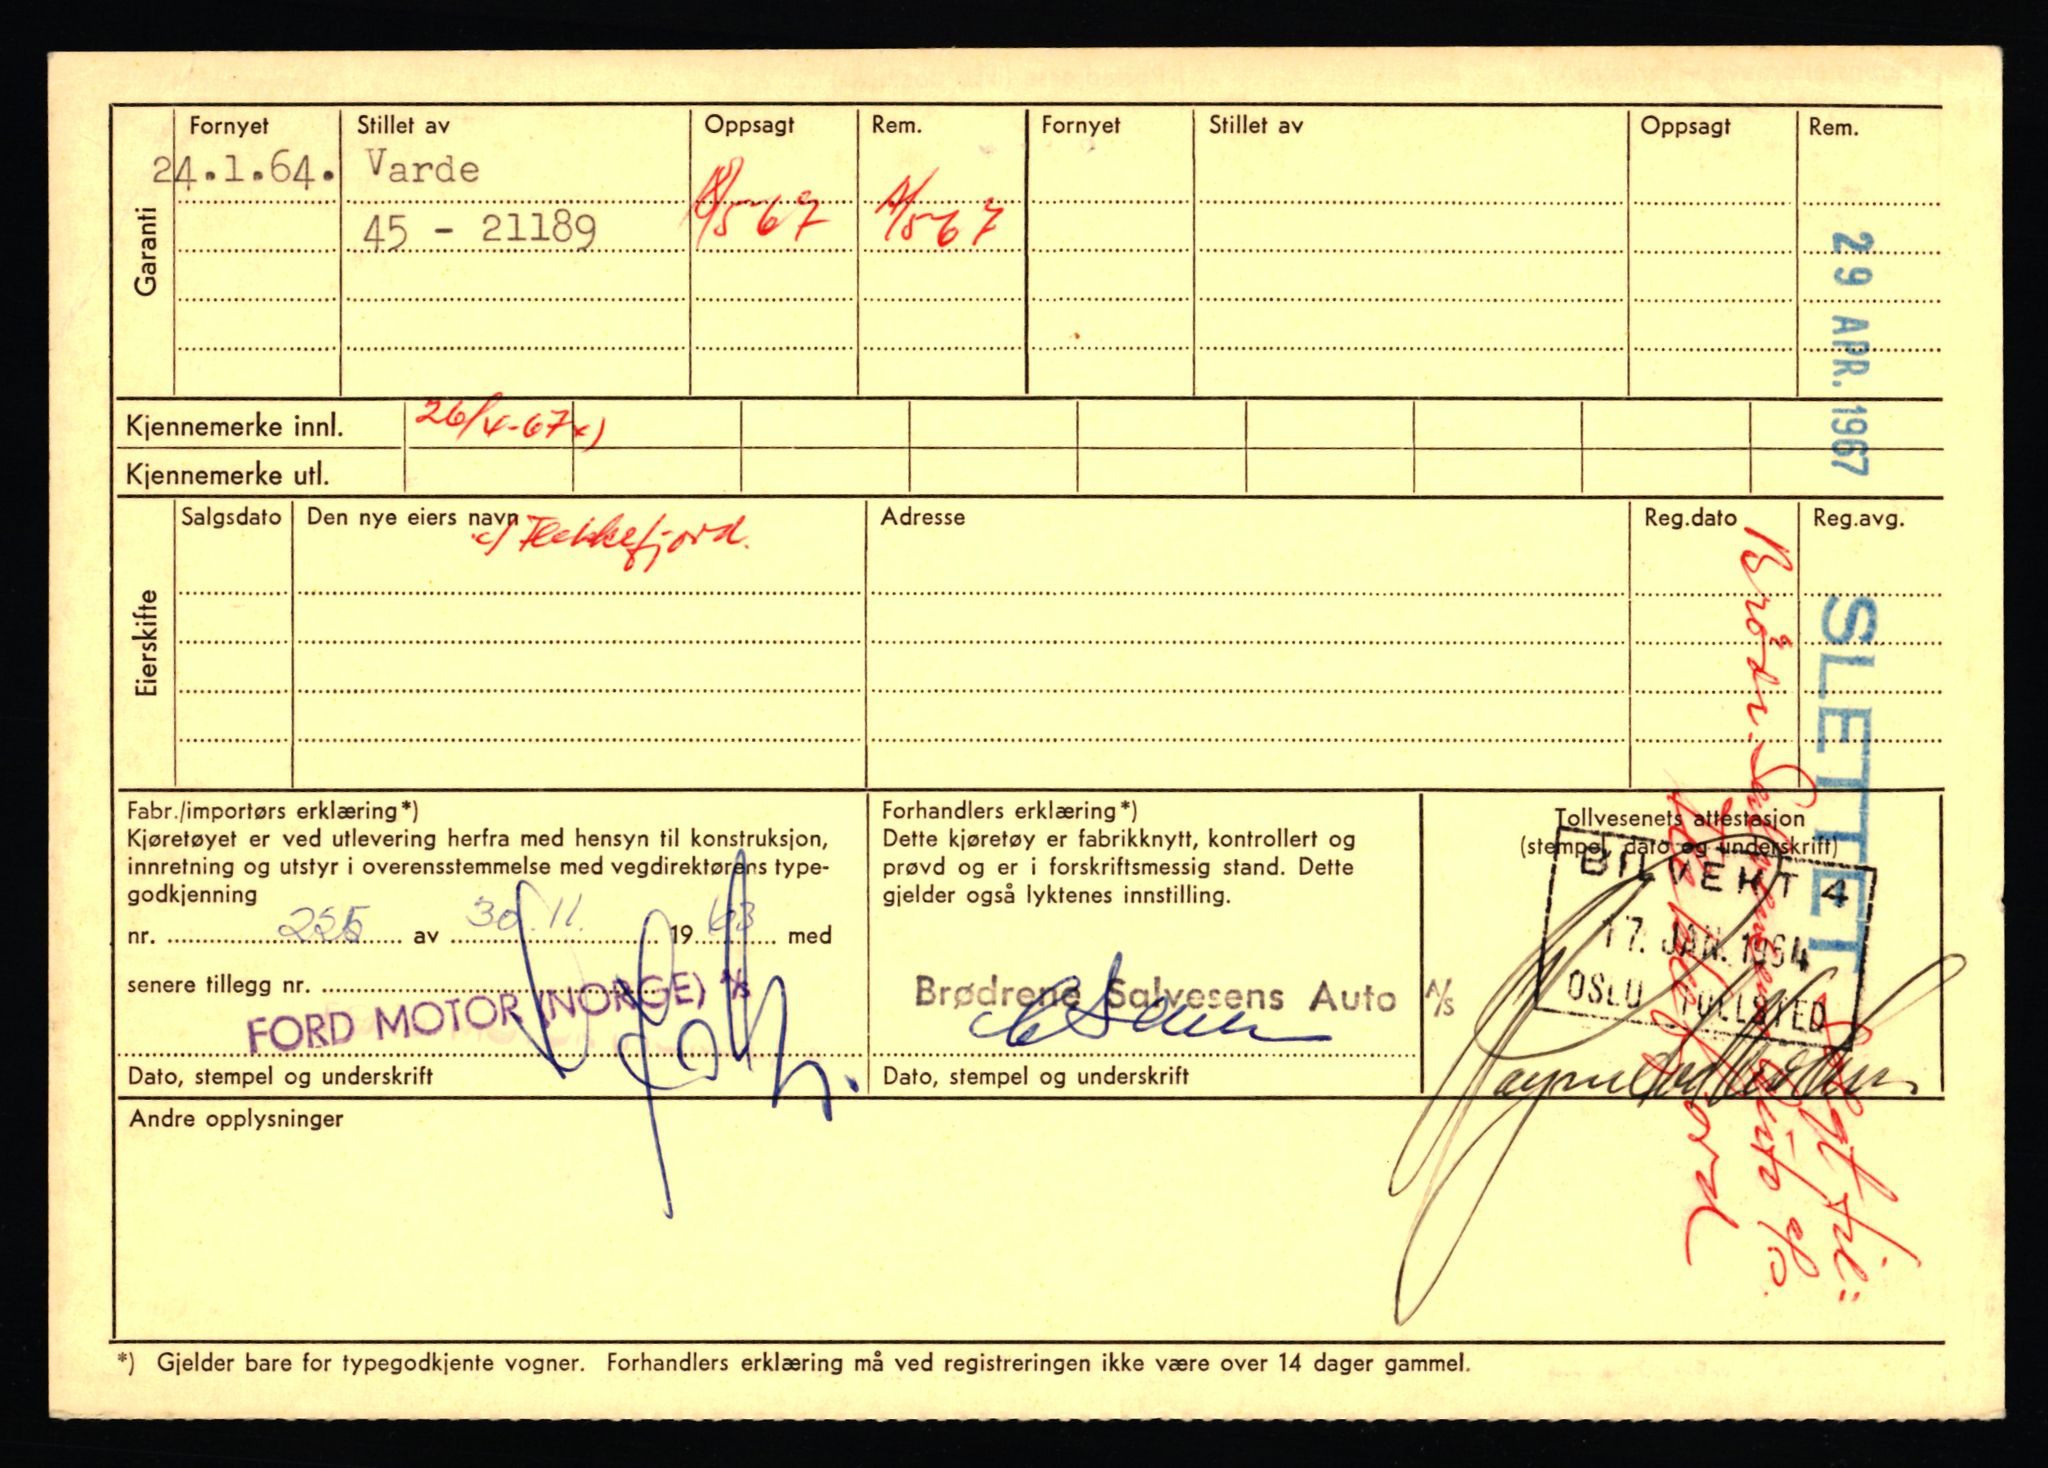 Garanti
Fornyet Stillet av Oppsagt Rem. Fornyet Stillet av Oppsagt Rem.
24.1.64. Varde
45 - 21189 /5-67 /5-67
29 APR. 1967
Kjennemerke innl. 26/4-67 x)
Kjennemerke utl.
Eierskifte
Salgsdato Den nye eiers navn Adresse Reg.dato Reg.avg.
x) Flekkefjord.
SLETTET
Solgt til:
Brødr. Salvesens Auto A/S
Flekkefjord
Fabr./importørs erklæring*)
Kjøretøyet er ved utlevering herfra med hensyn til konstruksjon,
innretning og utstyr i overensstemmelse med vegdirektørens type-
godkjenning
nr. 225 av 30.11. 1963 med
senere tillegg nr.
FORD MOTOR (NORGE) A/S
Dato, stempel og underskrift
Forhandlers erklæring*)
Dette kjøretøy er fabrikknytt, kontrollert og
prøvd og er i forskriftsmessig stand. Dette
gjelder også lyktenes innstilling.
Brødrene Salvesens Auto A/S
Dato, stempel og underskrift
Tollvesenets attestasjon
(stempel, dato og underskrift)
BILVEKT 4
17. JAN. 1964
OSLO TOLLSTED
Andre opplysninger
*) Gjelder bare for typegodkjente vogner. Forhandlers erklæring må ved registreringen ikke være over 14 dager gammel.